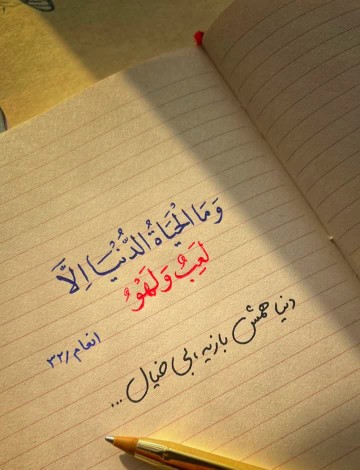 وَمَا الْحَيَاةُ الدُّنْيَا اِلَّا
لَعِبٌ وَلَهْوٌ
انعام/۳۲
دنیا همش بازیه، بی خیال ...